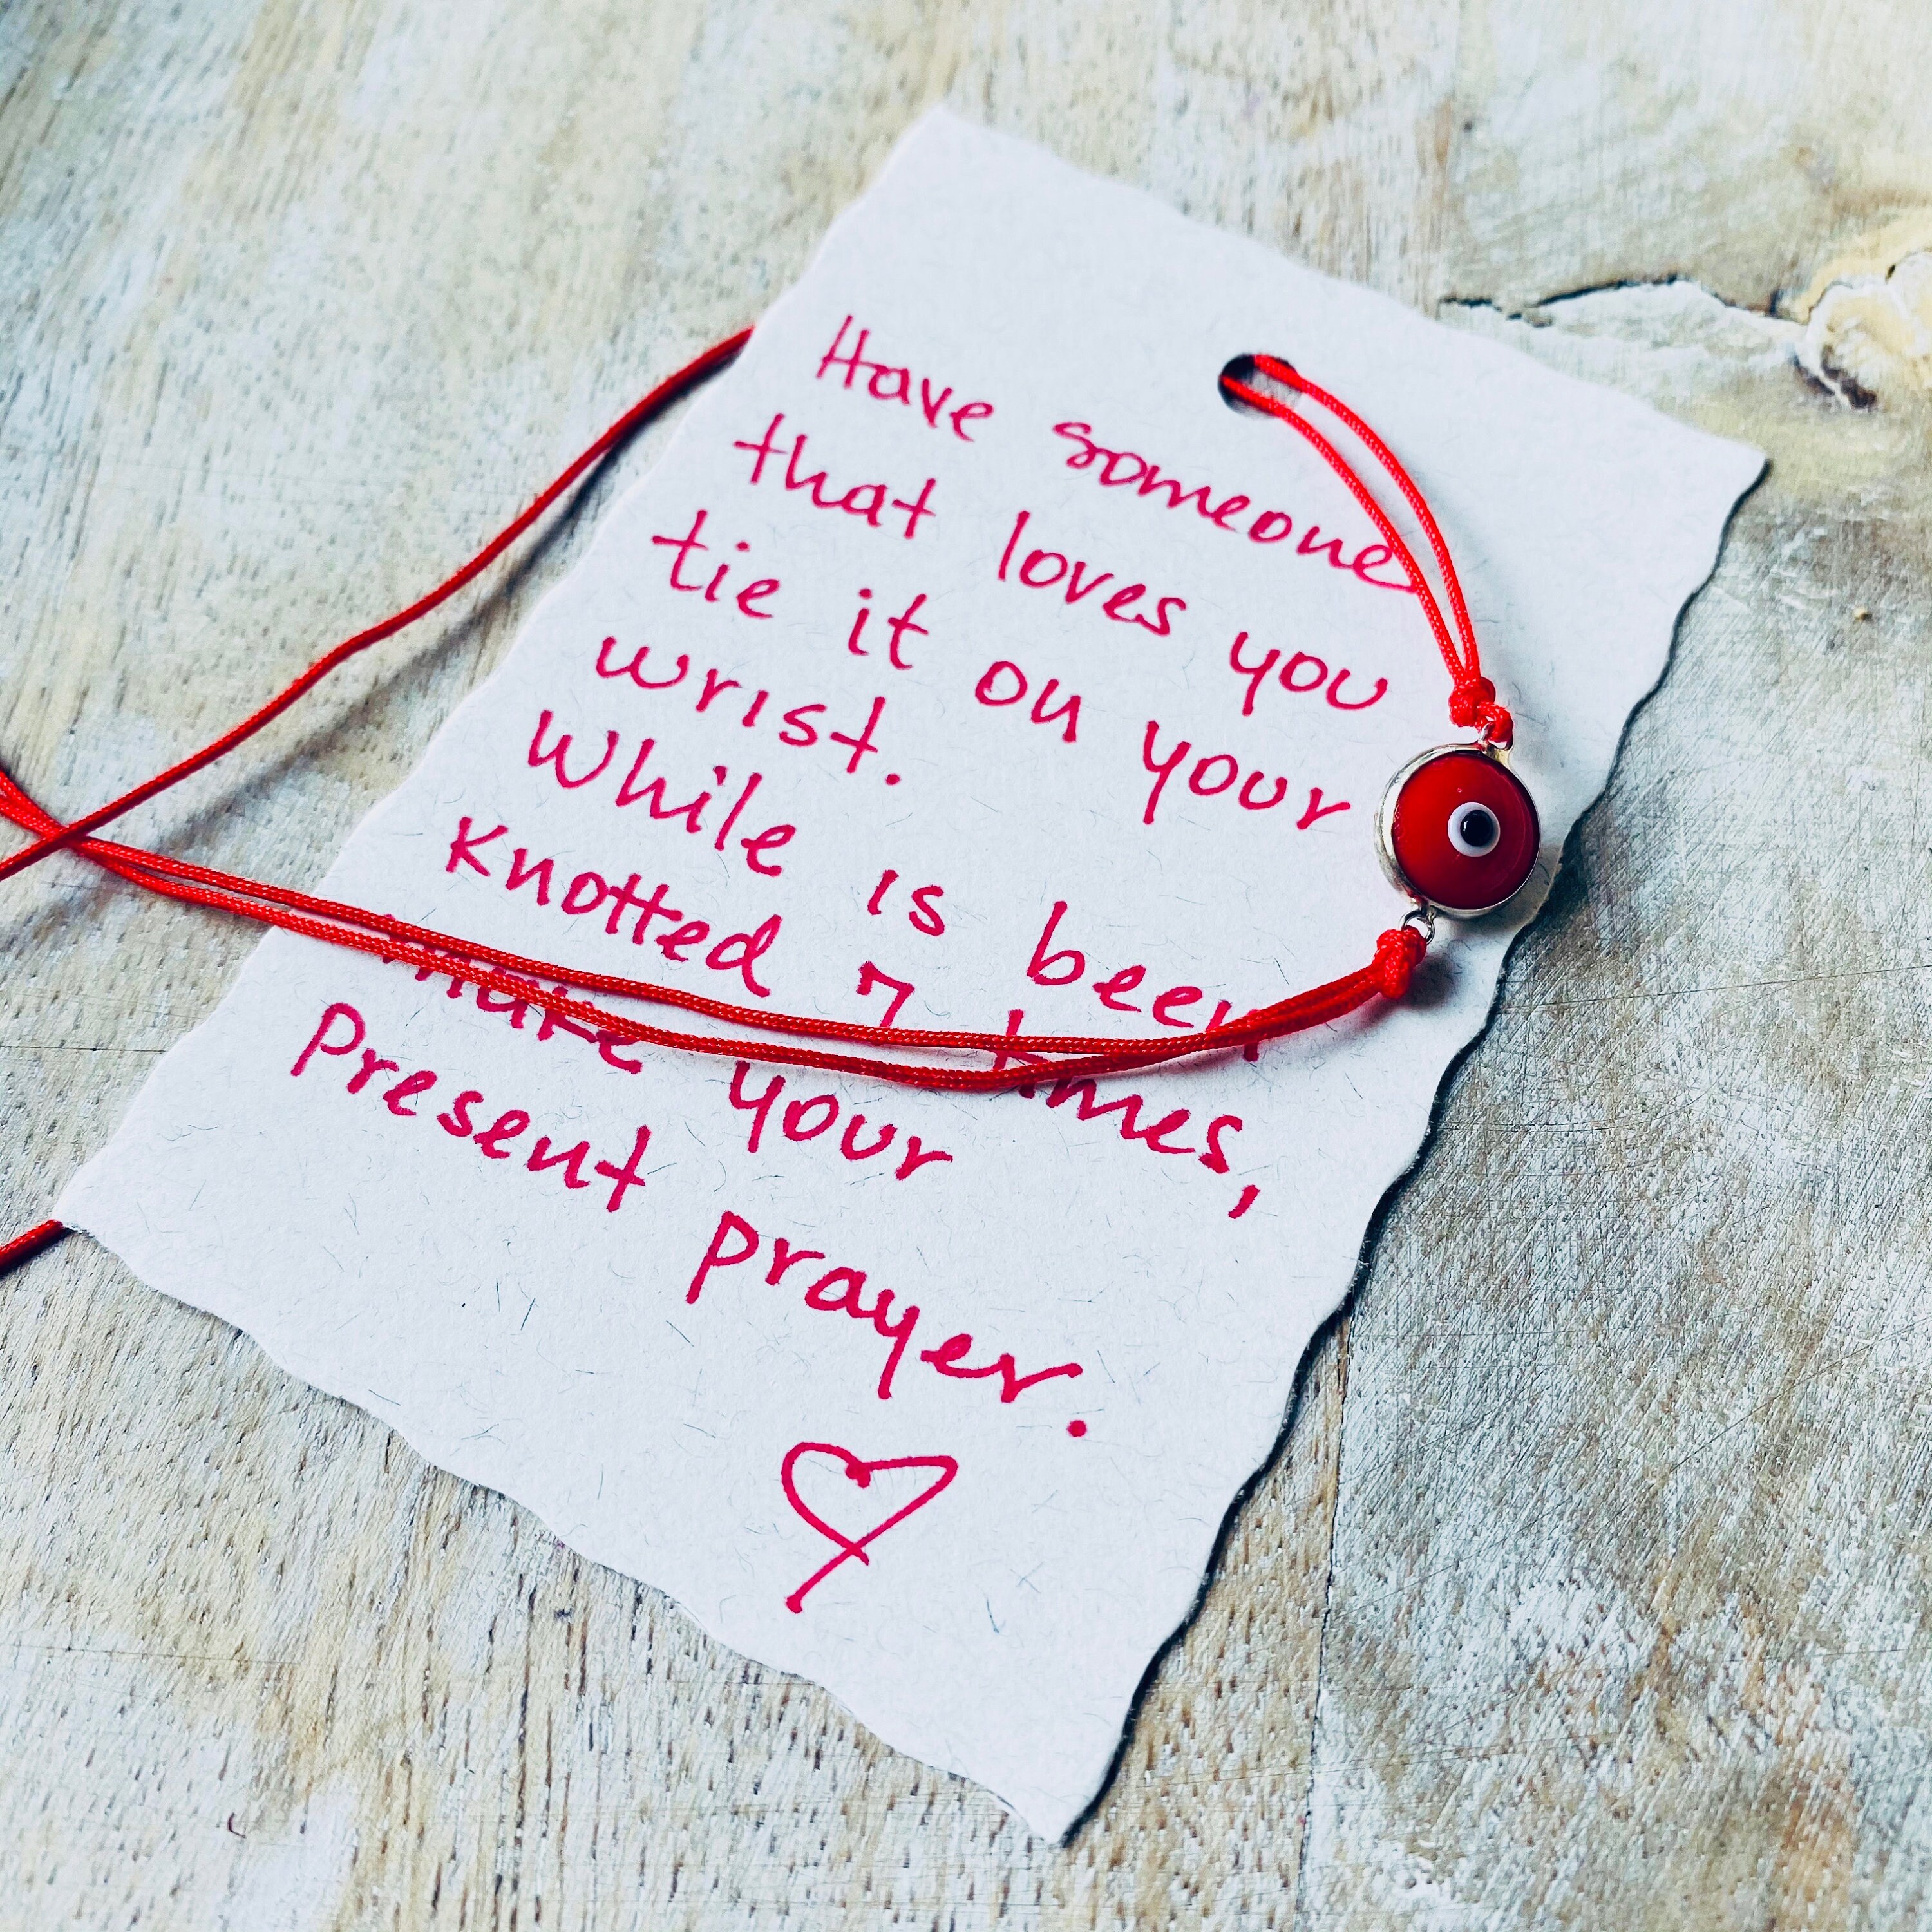 Have someone
that loves you
tie it on your
wrist.
While is been
Knotted 7 times,
make your
Present prayer.